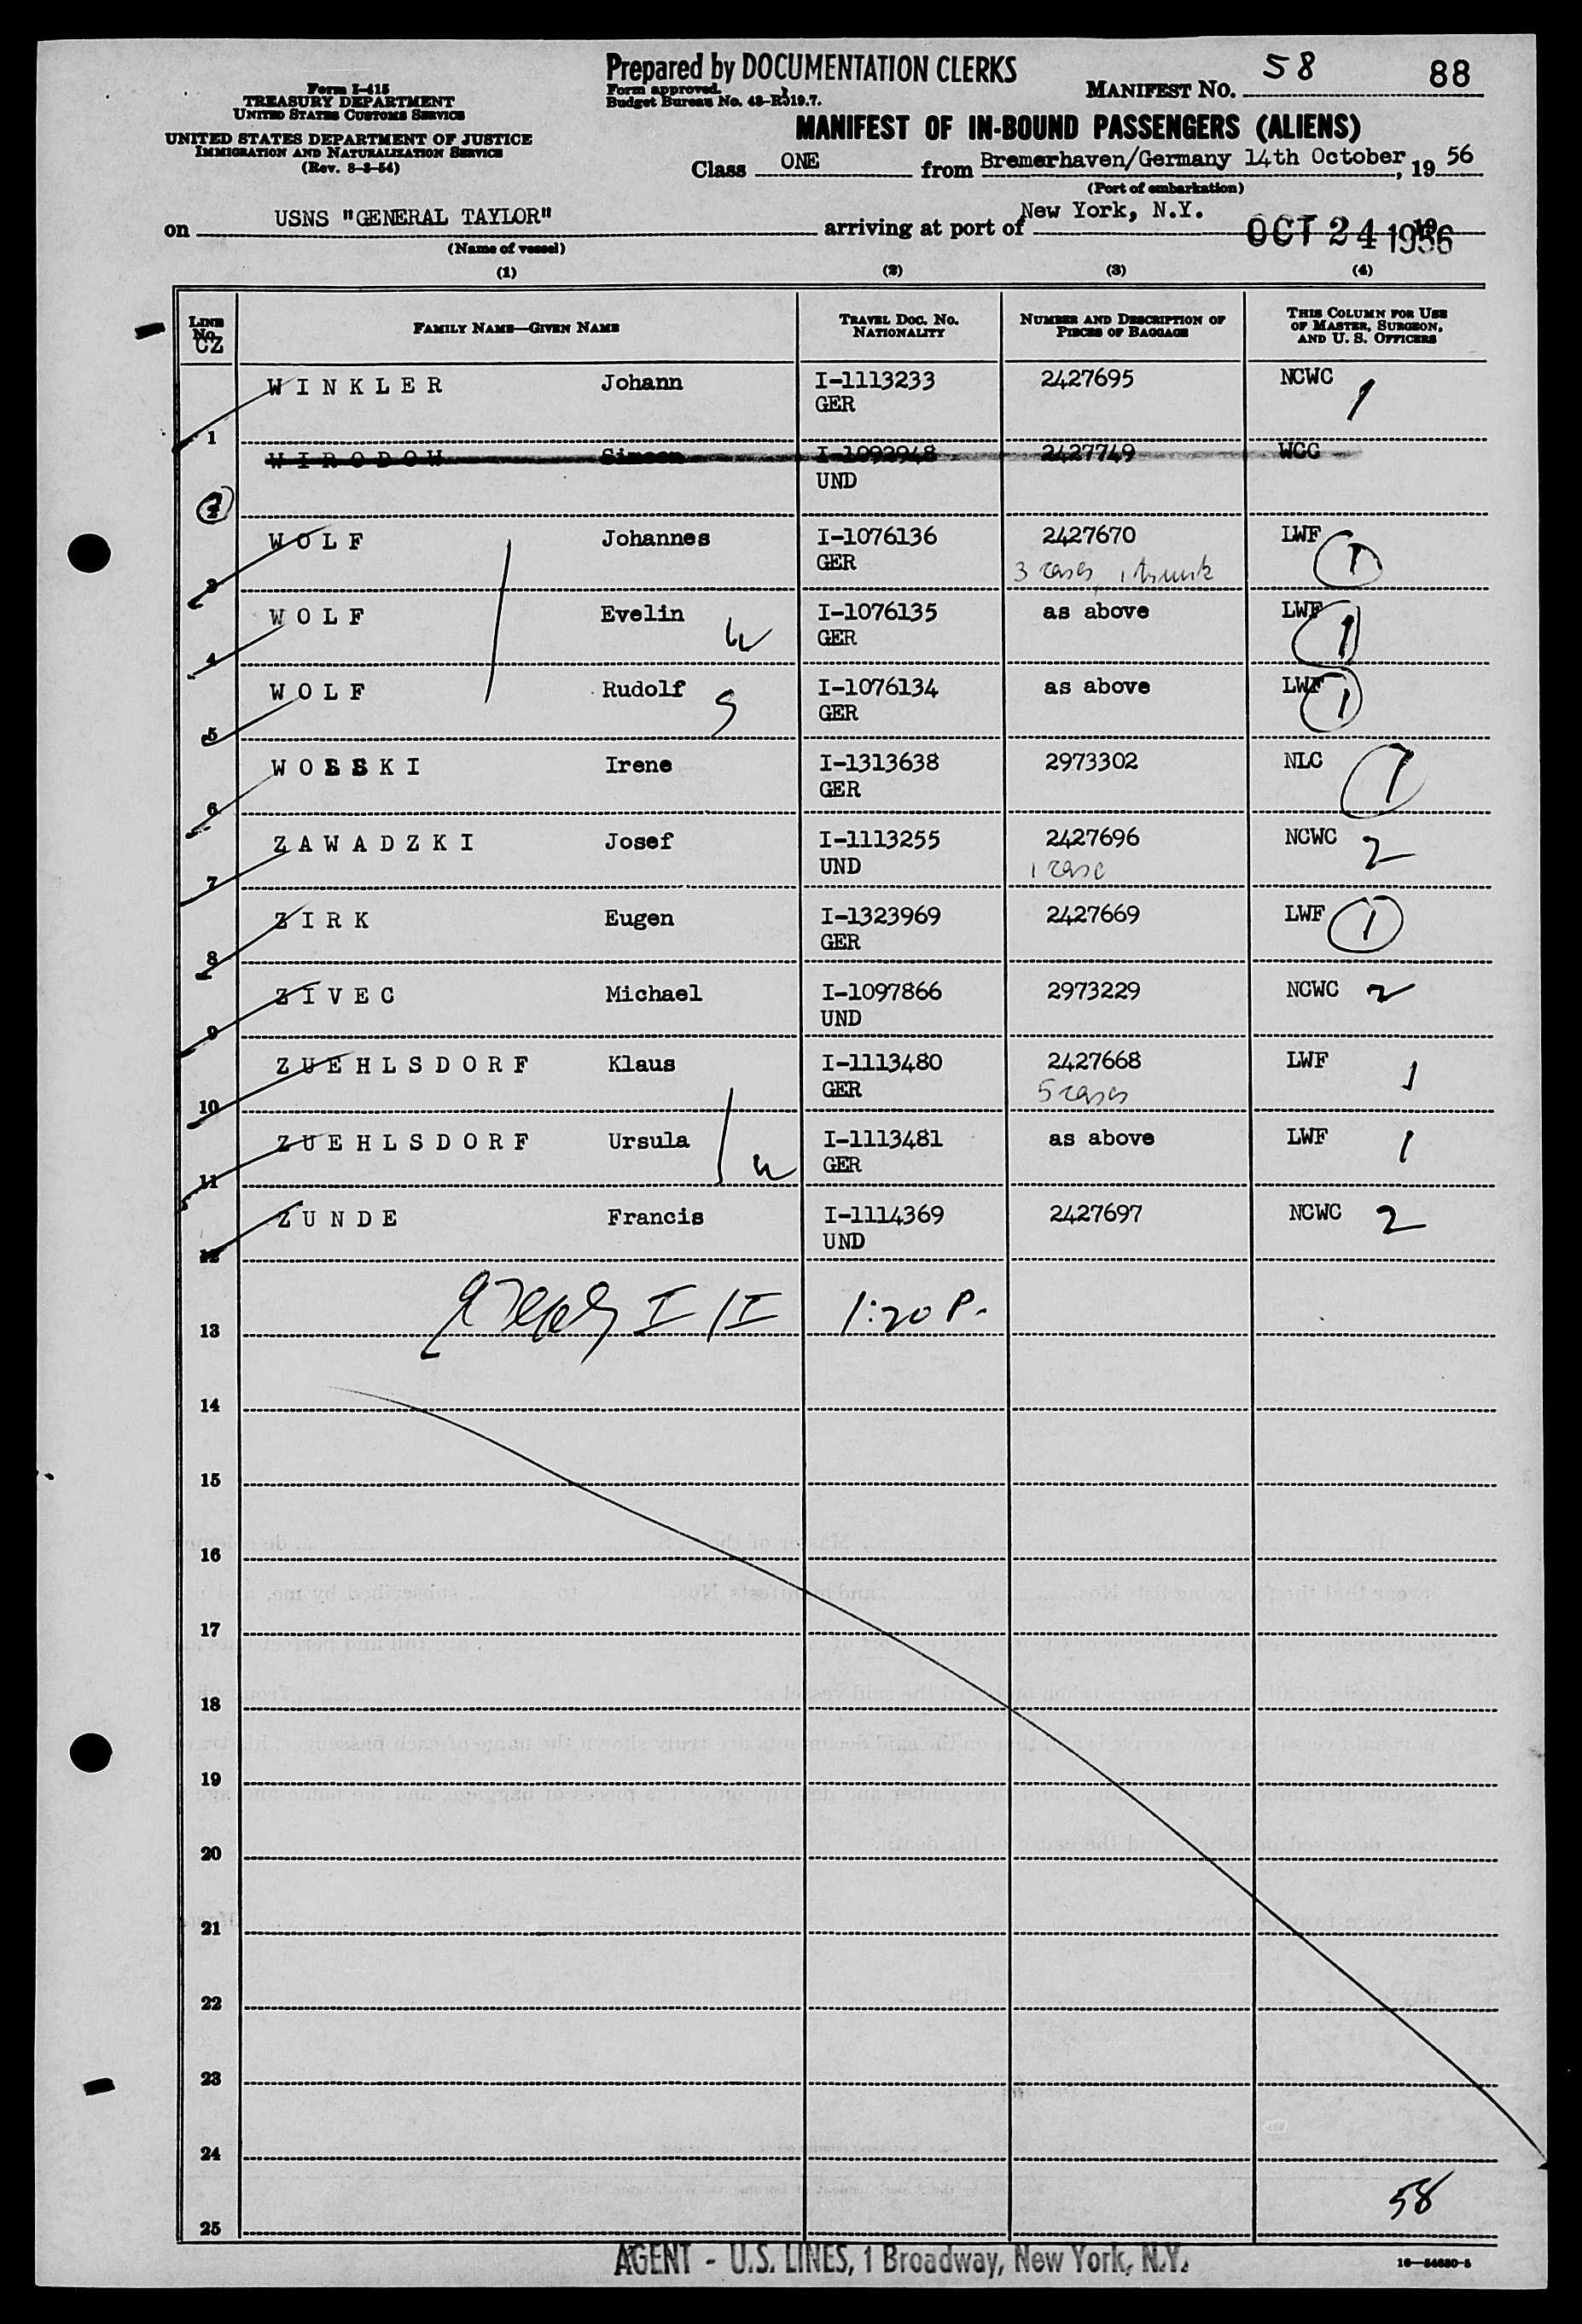 Prepared by DOCUMENTATION CLERKS
Form approved.
Budget Bureau No. 43-R319.7.
MANIFEST NO. 58 88
Form I-415
TREASURY DEPARTMENT
UNITED STATES CUSTOMS SERVICE
UNITED STATES DEPARTMENT OF JUSTICE
IMMIGRATION AND NATURALIZATION SERVICE
(Rev. 8-2-54)
MANIFEST OF IN-BOUND PASSENGERS (ALIENS)
Class ONE from Bremerhaven/Germany 14th October, 19 56
(Port of embarkation)
on USNS "GENERAL TAYLOR" arriving at port of New York, N.Y. OCT 24 1956
(Name of vessel)
(1) (2) (3) (4)
LINE No. CZ FAMILY NAME—GIVEN NAME TRAVEL DOC. NO. NATIONALITY NUMBER AND DESCRIPTION OF PIECES OF BAGGAGE THIS COLUMN FOR USE OF MASTER, SURGEON, AND U. S. OFFICERS
1 WINKLER Johann I-1113233 GER 2427695 NCWC 1
2 WIRODOW Simeon I-1092948 UND 2427749 WCC
3 WOLF Johannes I-1076136 GER 2427670 3 cases, 1 trunk LWF 1
4 WOLF Evelin W I-1076135 GER as above LWF 1
5 WOLF Rudolf S I-1076134 GER as above LWF 1
6 WOSSKI Irene I-1313638 GER 2973302 NLC 1
7 ZAWADZKI Josef I-1113255 UND 2427696 1 case NCWC 2
8 ZIRK Eugen I-1323969 GER 2427669 LWF 1
9 ZIVEC Michael I-1097866 UND 2973229 NCWC 2
10 ZUEHLSDORF Klaus I-1113480 GER 2427668 5 cases LWF 1
11 ZUEHLSDORF Ursula W I-1113481 GER as above LWF 1
12 ZUNDE Francis I-1114369 UND 2427697 NCWC 2
13 I/I 1:20 P.
14
15
16
17
18
19
20
21
22
23
24
58
25
AGENT - U.S. LINES, 1 Broadway, New York, N.Y.
16—54680-5